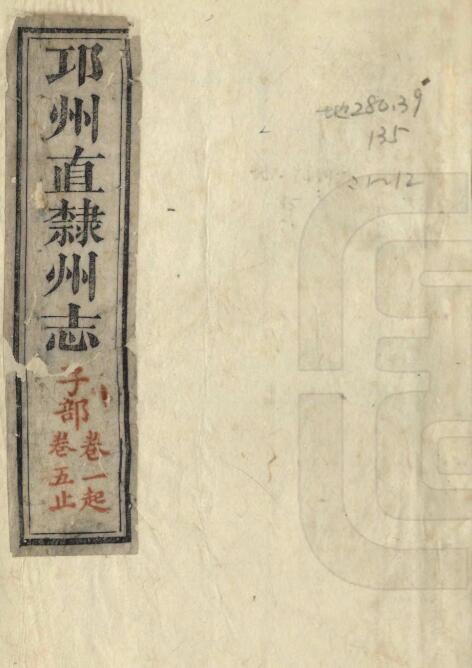 邛州直隸州志
子部
卷一起
卷五止
地280.39
135